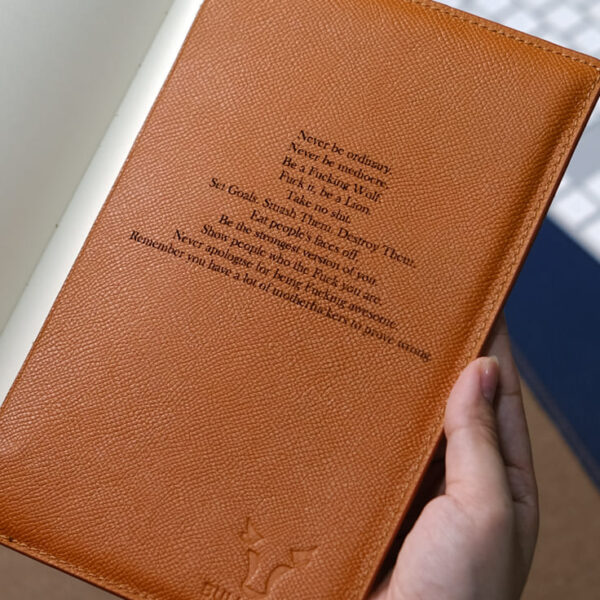 Never be ordinary.
Never be mediocre.
Be a Fucking Wolf.
Fuck it, be a Lion.
Take no shit.
Set Goals. Smash Them. Destroy Them.
Eat people's faces off.
Be the strongest version of you.
Show people who the Fuck you are.
Never apologise for being Fucking awesome.
Remember you have a lot of motherfuckers to prove wrong.